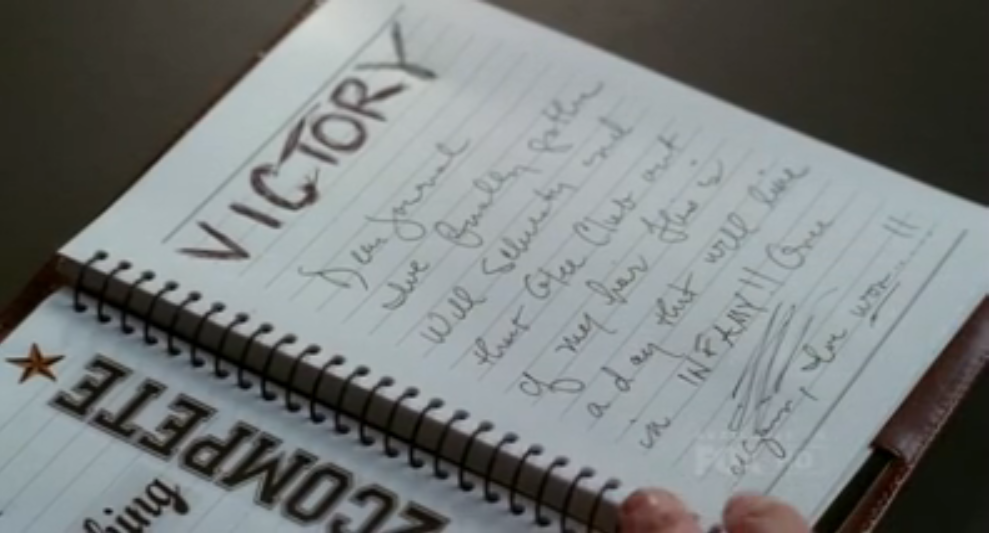 VICTORY
Dear Journal
Ive finally gotten
Will Schuester and
that Glee Club out
of my hair. This is
a day that will live
in INFAMY!! Once
again, I've won....!!
COMPETE
hing
FOX